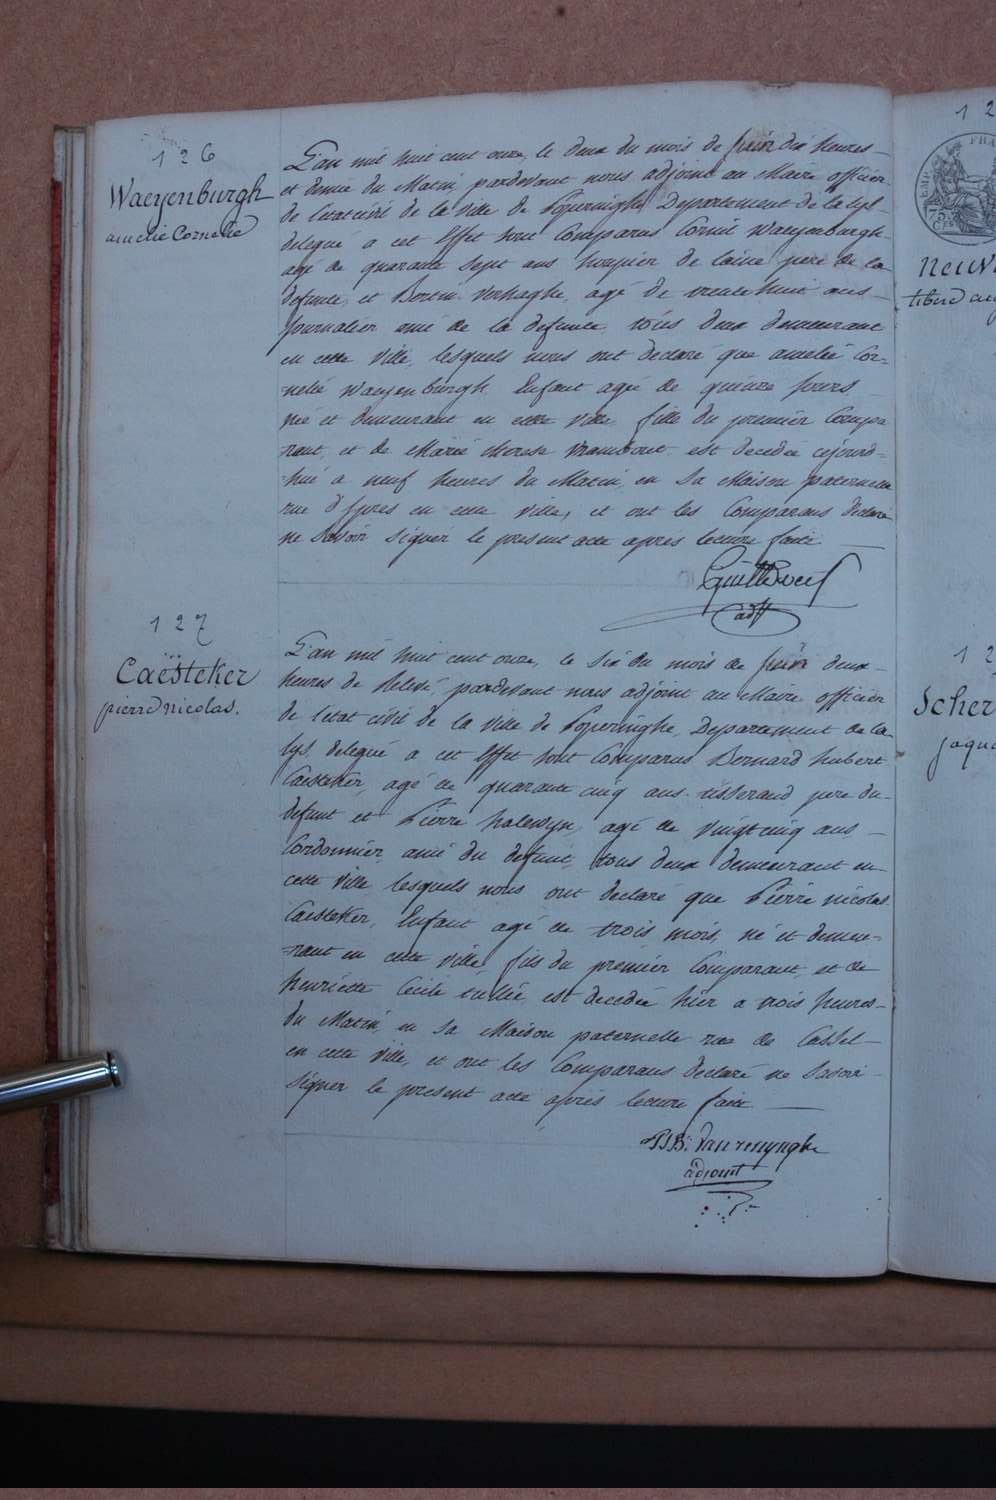 126
Waeyenburgh
amelie Cornelie
L'an mil huit cent onze, le deux du mois de juin dix heures
et demie du Matin, pardevant nous adjoint au Maire officier
de l'etat civil de la ville de Poperinghe Departement de la Lys
delegué a cet Effet sont Comparus Cornil Waeyenburgh
agé de quarante sept ans houpier de laine pere de la
defunte, et Bertin Verhaghe, agé de trente huit ans
Journalier ami de la defunte, tous deux demeurant
en cette ville, lesquels nous ont declaré que amelie Cor=
nelie Waeyenburgh Enfant agée de quinze jours
née et demeurant en cette ville, fille du premier Compa
rant, et de Marie therese Vrambout est decedée cejourd=
=hui a neuf heures du Matin, en sa Maison paternelle
rue d'Ypres en cette ville, et ont les Comparans declaré
ne savoir signer le present acte apres lecture faite
adjt
127
Caesteker
pierre nicolas.
L'an mil huit cent onze, le six du mois de juin deux
heures de relevé, pardevant nous adjoint au Maire officier
de l'etat civil de la ville de Poperinghe, Departement de la
Lys, delegué a cet Effet sont Comparus Bernard hubert
Caesteker, agé de quarante cinq ans tisserand pere du
defunt et Pierre halewyn, agé de vingt cinq ans
Cordonnier, ami du defunt, tous deux demeurant en
cette ville lesquels nous ont declaré que Pierre nicolas
Caesteker, Enfant agé de trois mois, né et demeu=
=rant en cette ville fils du premier Comparant, et de
henriette Cecile tullée, est decedée hier a trois heures
du Matin, en sa Maison paternelle rue de Cassel
en cette ville, et ont les Comparans declaré ne savoir
signer le present acte apres lecture faite
adjoint
12
FRA
75
Neuv
libere au
12
Scher
jaque